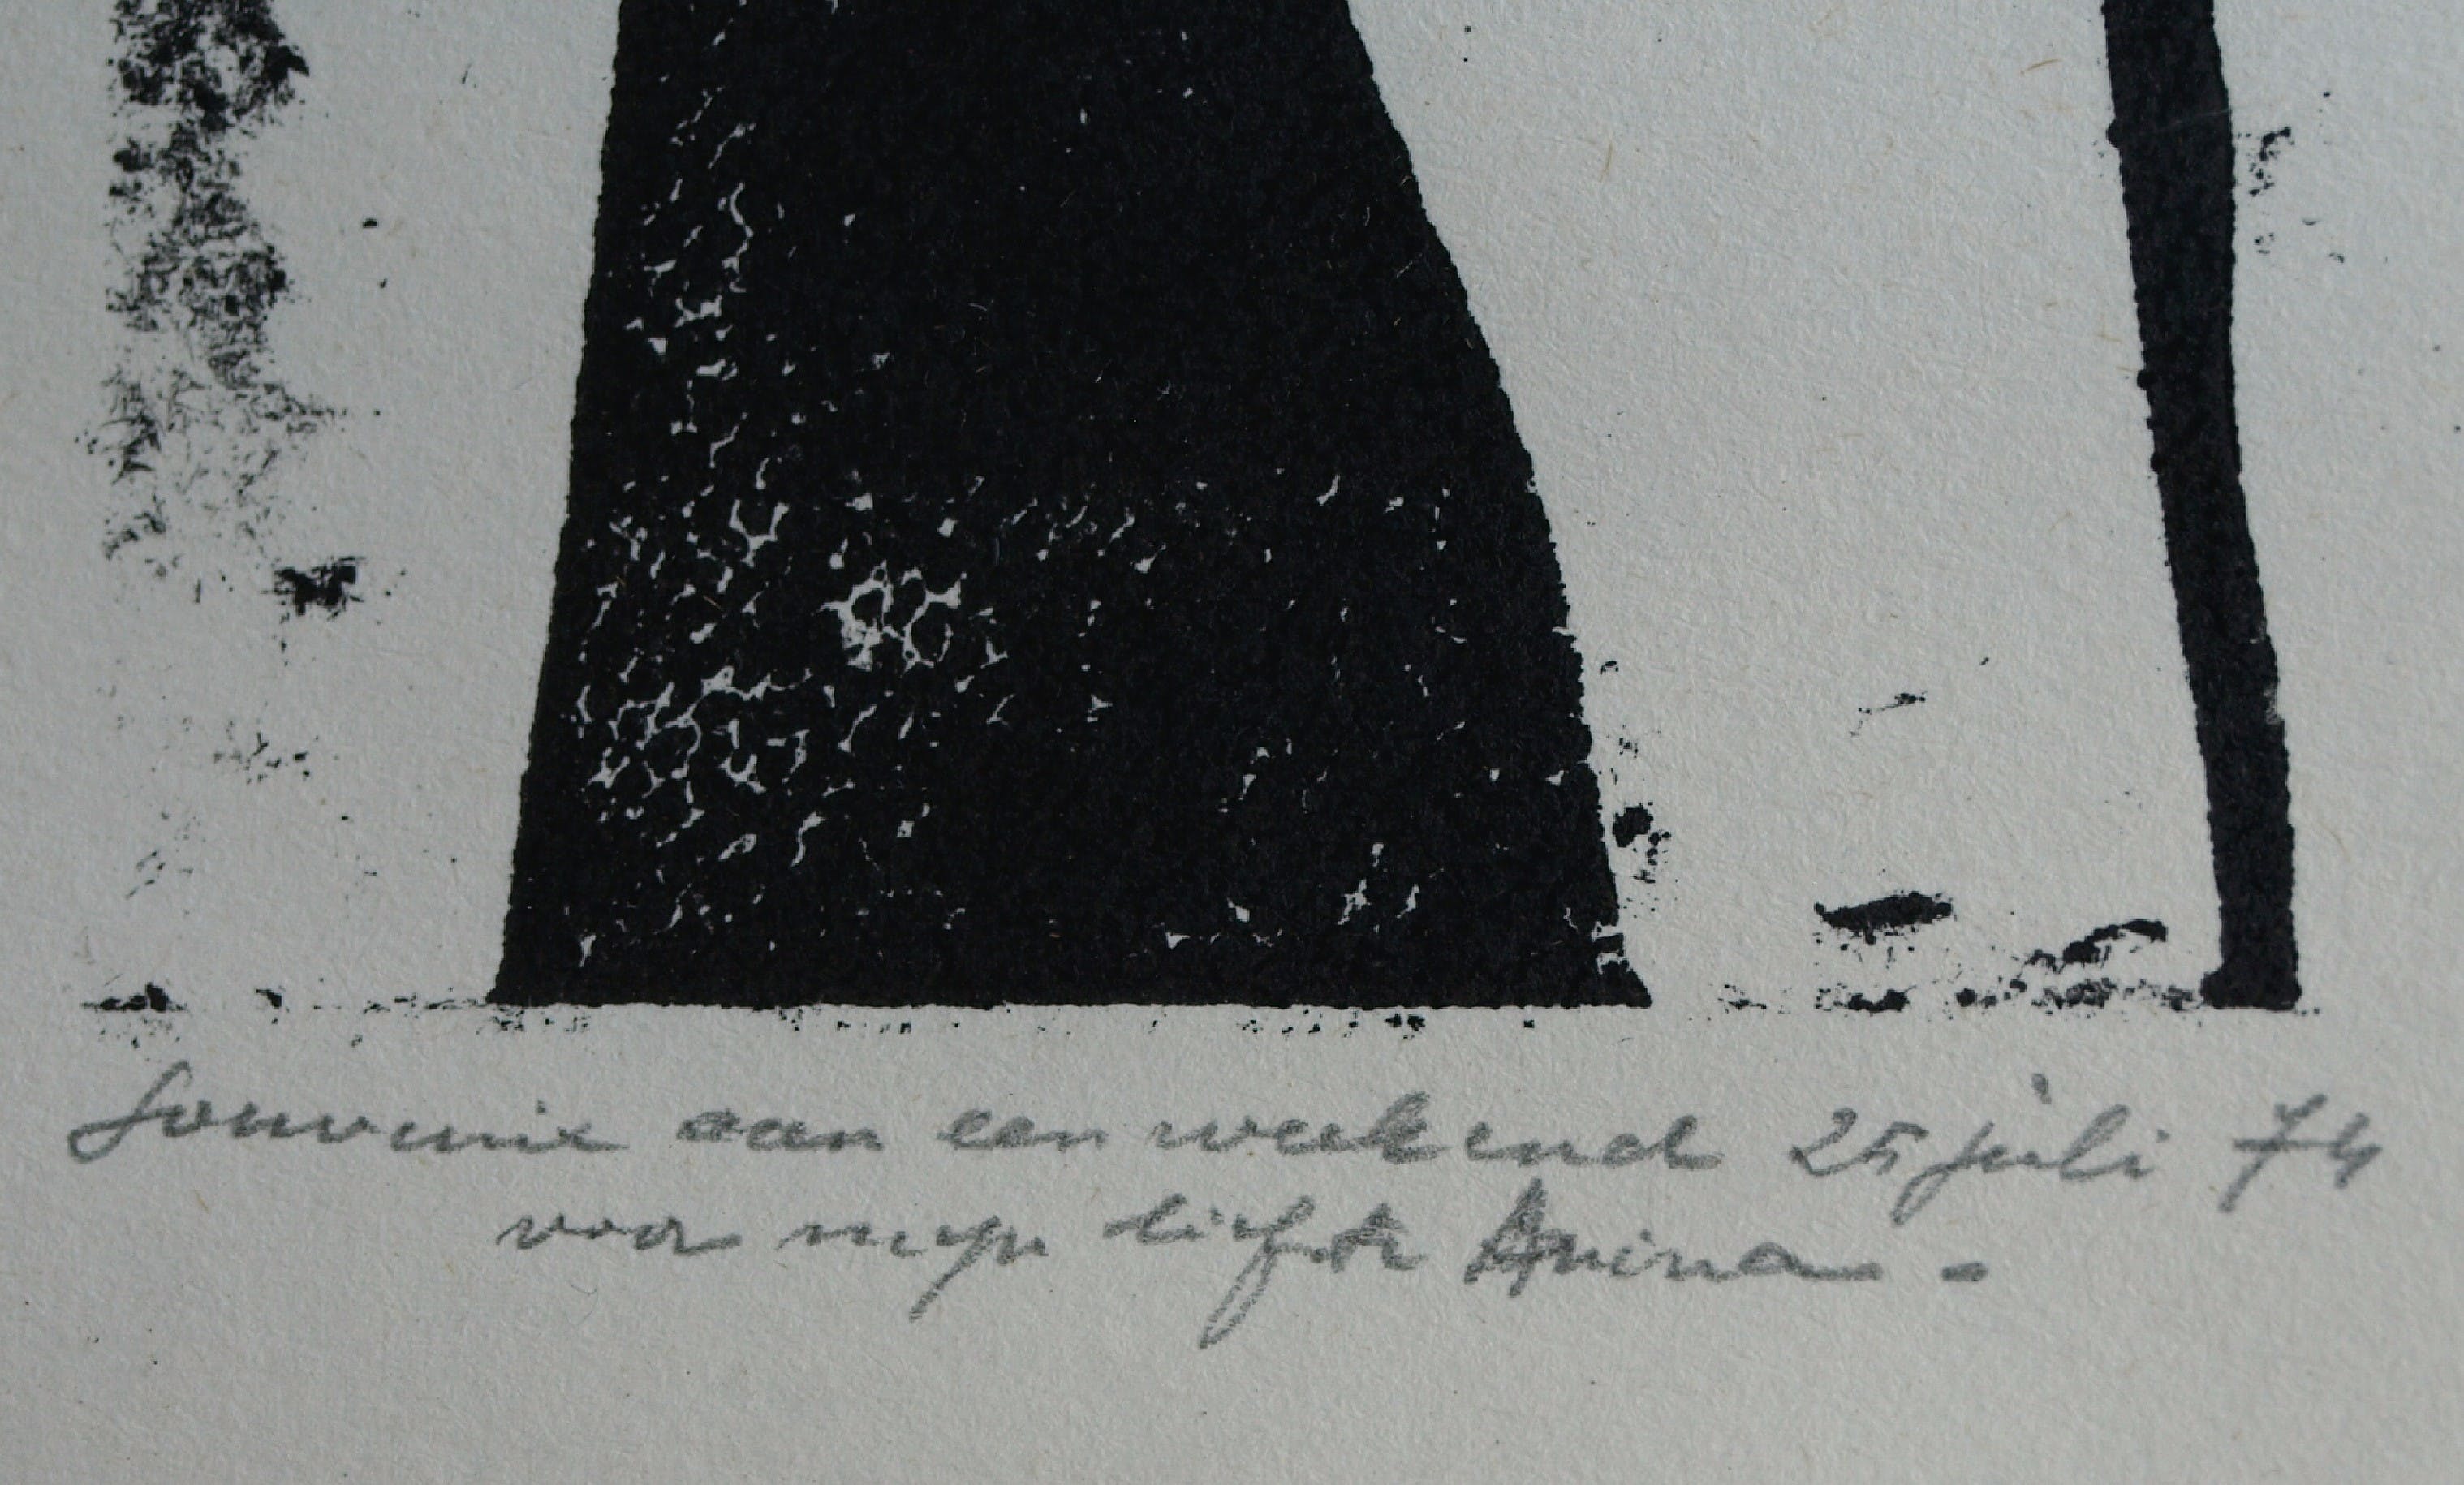 Souvenir aan een weekend 25 juli 74
voor mijn liefste Anina -